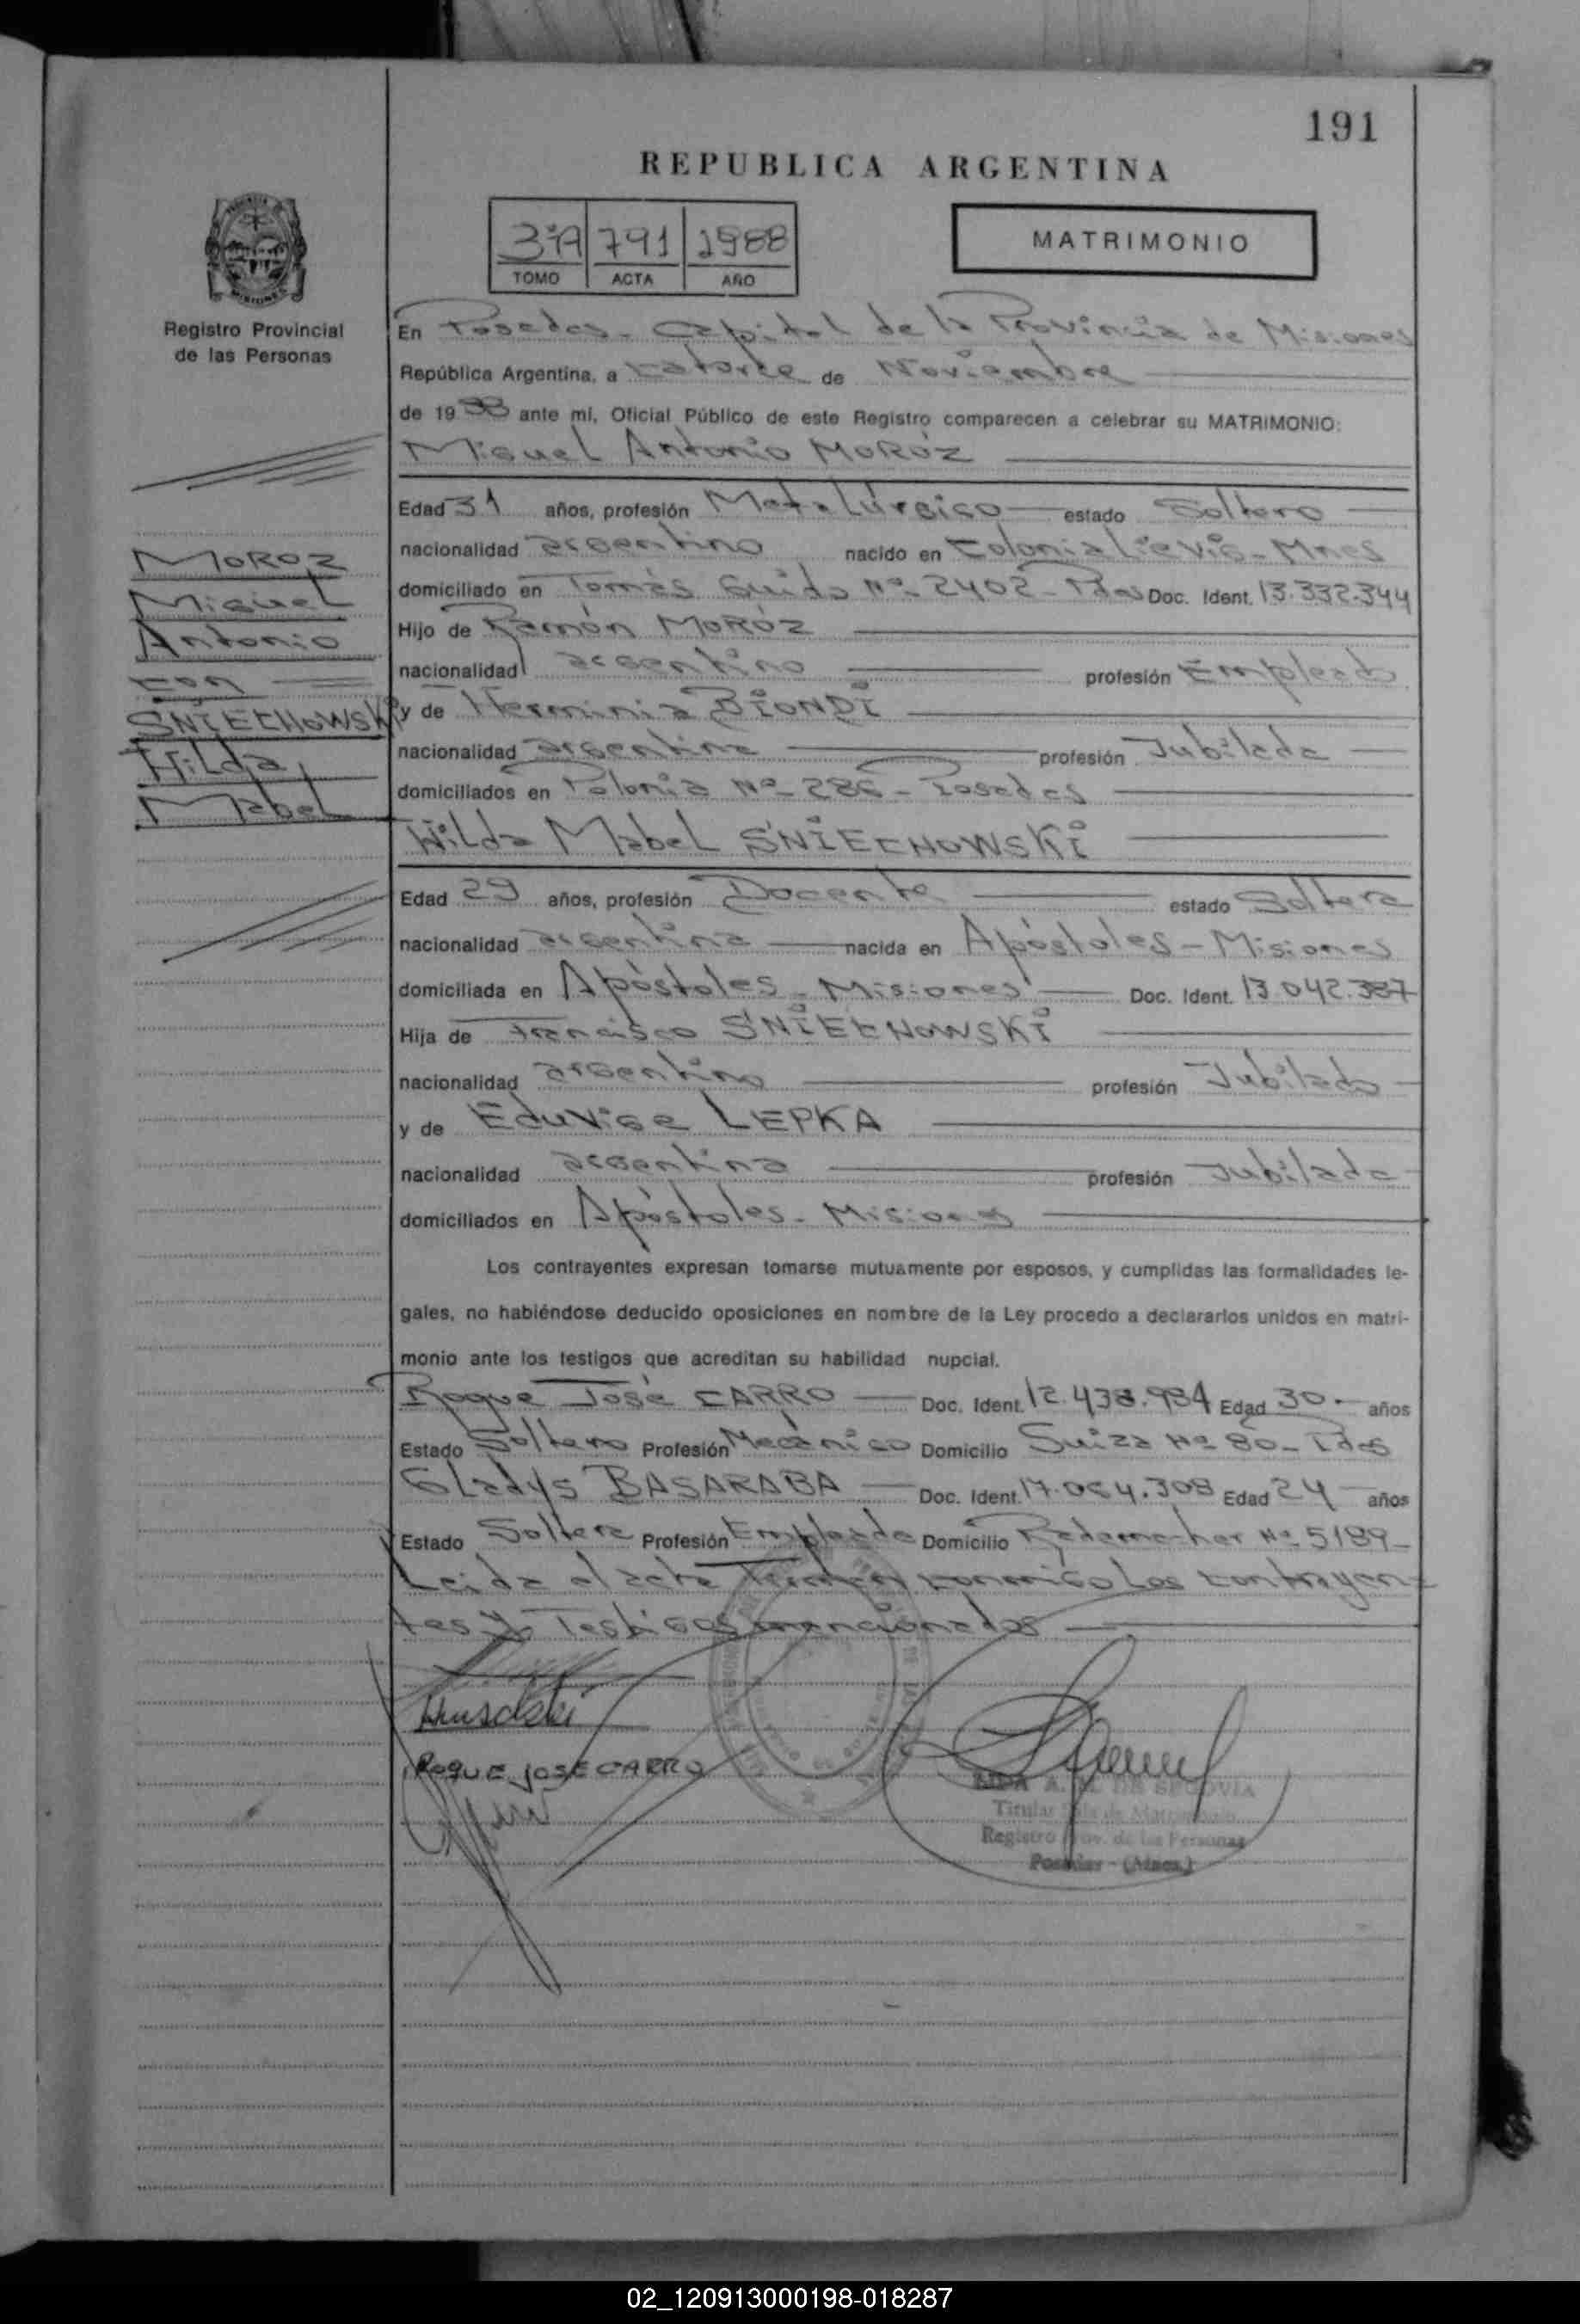 191
REPUBLICA ARGENTINA
3ºA 791 1988
TOMO ACTA AÑO
MATRIMONIO
MISIONES
Registro Provincial
de las Personas
MOROZ
Miguel
Antonio
con
SNIECHOWSKi
Hilda
Mabel
En Posadas - Capital de la Provincia de Misiones
República Argentina, a catorce de Noviembre
de 1988 ante mi, Oficial Público de este Registro comparecen a celebrar su MATRIMONIO:
Miguel Antonio MOROZ
Edad 31 años, profesión Metalúrgico estado Soltero
nacionalidad argentino nacido en Colonia Liebig - Mnes
domiciliado en Tomás Guido Nº 2402 - Pdas Doc. Ident. 13.332.344
Hijo de Ramón MORÓZ
nacionalidad argentino profesión Empleado
y de Herminia BiONDi
nacionalidad argentina profesión Jubilada
domiciliados en Polonia Nº 286 - Posadas
Hilda Mabel SNiECHOWSKi
Edad 29 años, profesión Docente estado Soltera
nacionalidad argentina nacida en Apóstoles - Misiones
domiciliada en Apóstoles - Misiones Doc. Ident. 13.042.387
Hija de Francisco SNiECHOWSKi
nacionalidad argentino profesión Jubilado
y de Eduvige LEPKA
nacionalidad argentina profesión Jubilada
domiciliados en Apóstoles - Misiones
Los contrayentes expresan tomarse mutuamente por esposos, y cumplidas las formalidades le-
gales, no habiéndose deducido oposiciones en nombre de la Ley procedo a declararlos unidos en matri-
monio ante los testigos que acreditan su habilidad nupcial.
Roque José CARRO Doc. Ident. 12.438.984 Edad 30 años
Estado Soltero Profesión Mecánico Domicilio Suiza Nº 80 - Pdas
Gladys BASARABA Doc. Ident. 17.054.308 Edad 24 años
Estado Soltera Profesión Empleada Domicilio Rademacher Nº 5189 -
Leida el acta firman conmigo Los contrayen-
tes y Testigos mencionados
ROQUE JOSE CARRO
A. DE SEGOVIA
Titular de Matrimonio
Registro Prov. de las Personas
Posadas - (Mnes.)
02_120913000198-018287